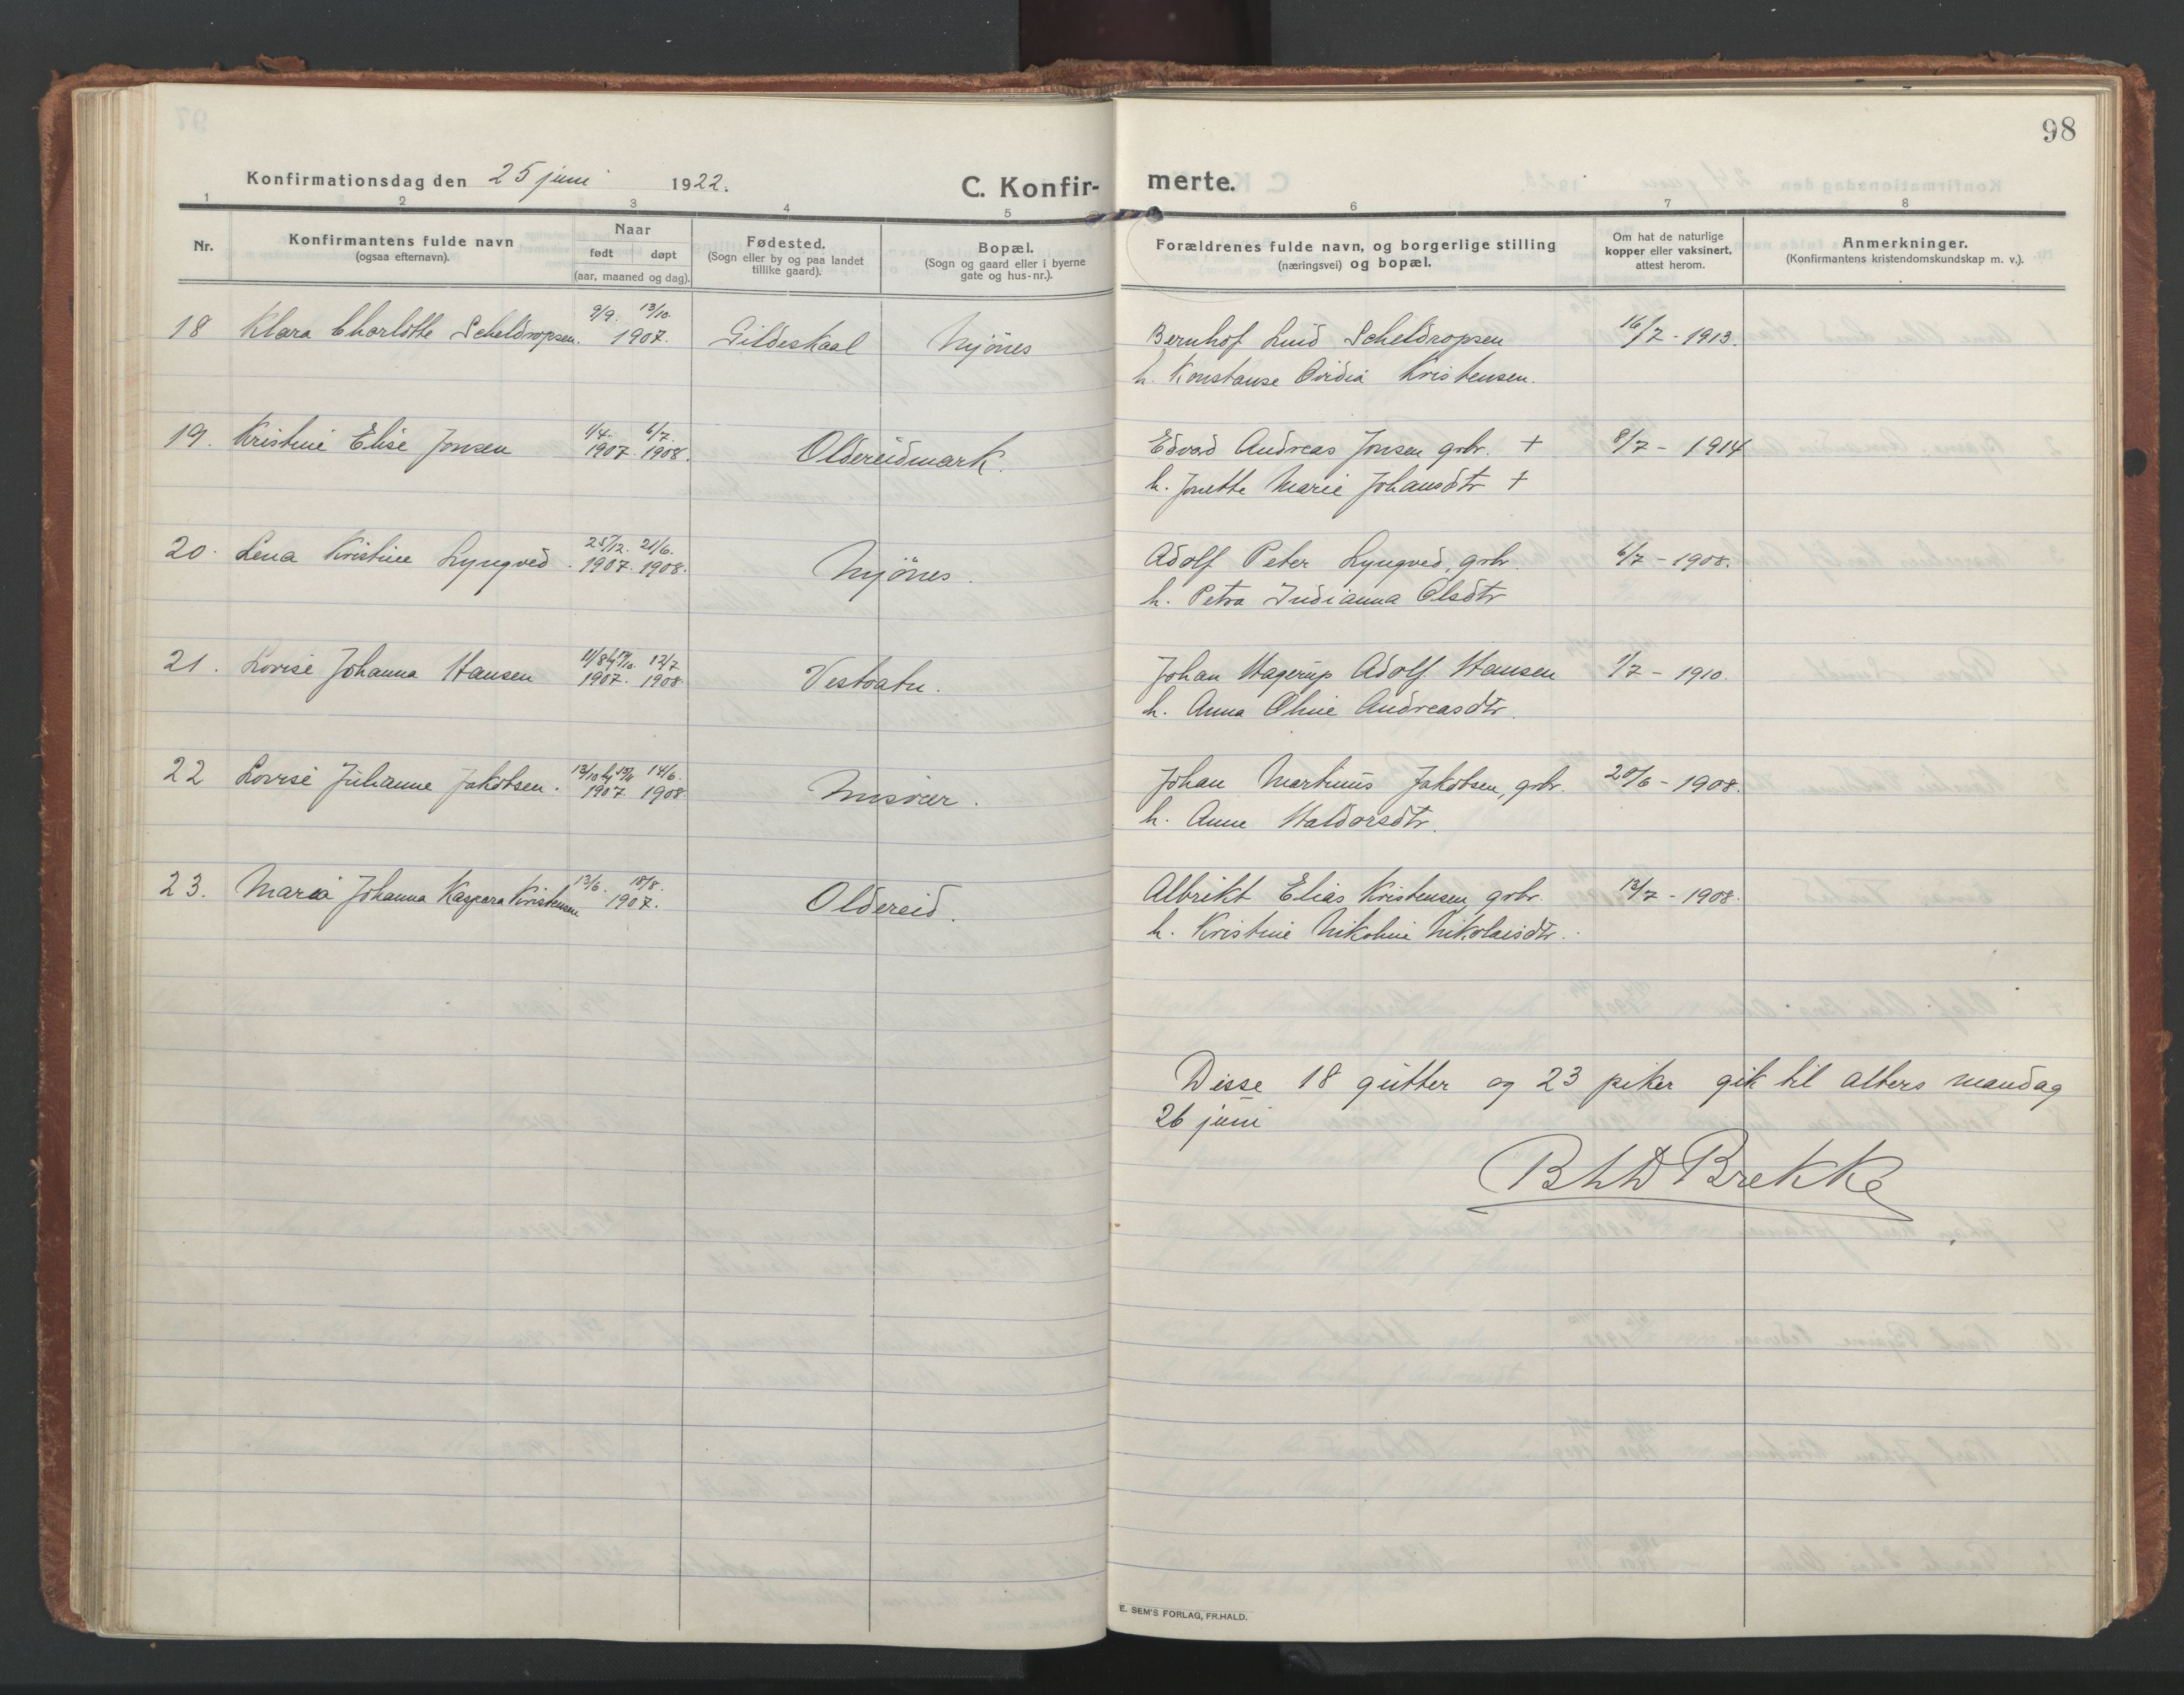 98
Konfirmationsdag den 25 juni 1922.
C. Konfir-
merte.
1 2 3 4 5 6 7 8
Nr.
Konfirmantens fulde navn
(ogsaa efternavn).
Naar
født døpt
(aar, maaned og dag).
Fødested.
(Sogn eller by og paa landet
tillike gaard).
Bopæl.
(Sogn og gaard eller i byerne
gate og hus-nr.).
Forældrenes fulde navn, og borgerlige stilling
(næringsvei) og bopæl.
Om hat de naturlige
kopper eller vaksinert,
attest herom.
Anmerkninger.
(Konfirmantens kristendomskundskap m. v.).
18 Klara Charlotte Scheldropsen. 9/9. 13/10. 1907. Gildeskaal Mjønes Bernhof Luid Scheldropsen 16/7 - 1913.
h. Konstanse Ovidia Kristensen.
19. Kristine Elise Jonsen 1/4. 1907. 6/7. 1908. Oldereidmark. Edvard Andreas Jonsen grbr. + 8/7 - 1914
h. Jonette Marie Johansdtr +
20. Lena Kristine Lyngved. 25/12. 1907. 21/6. 1908. Mjønes. Adolf Peter Lyngved, grbr. 6/7 - 1908.
h. Petra Indianna Olsdtr
21. Lovise Johanna Hansen 11/8 hj 17/10 1907. 12/7 1908 Vestvatn. Johan Hagerup Adolf Hansen 1/7 - 1910.
h. Anna Oline Andreasdtr.
22 Lovise Julianne Jakobsen. 13/10 hj 13/11 1907. 14/6. 1908 Misvær. Johan Martinus Jakobsen, grbr. 20/6 - 1908.
h. Anne Haldorsdtr.
23. Maria Johanna Kaspara Kristensen 13/6. 18/8. 1907. Oldereid. Albrikt Elias Kristensen, grbr. 13/7 - 1908.
h. Kristine Nikoline Nikolaisdtr.
Disse 18 gutter og 23 piker gik til alters mandag
26 juni
Brekke
E. SEM'S FORLAG, FR.HALD.